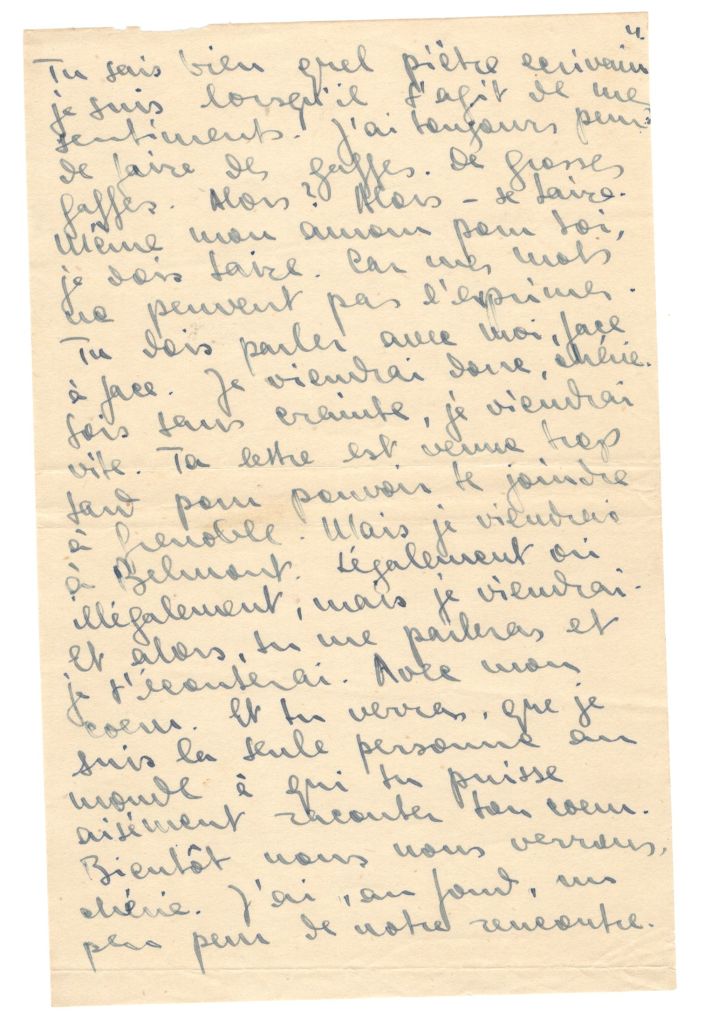 4.
Tu sais bien quel piètre ecrivain
je suis lorsqu'il s'agit de mes
sentiments. J'ai toujours peur
de faire des gaffes. De grosses
gaffes. Alors? Alors – se taire.
Même mon amour pour toi,
je dois taire. Car mes mots
ne peuvent pas l'exprimer.
Tu dois parler avec moi, face
à face. Je viendrai donc, chérie.
Sois sans crainte, je viendrai
vite. Ta lettre est venue trop
tard pour pouvoir te joindre
à Grenoble. Mais je viendrai
à Belmont. Légalement ou
illégalement, mais je viendrai.
Et alors, tu me parleras et
je t'écouterai. Avec mon
coeur. Et tu verras, que je
suis la seule personne au
monde à qui tu puisse
aisément raconter ton coeur.
Bientôt nous nous verrons,
chérie. J'ai, au fond, un
peu peur de notre rencontre.